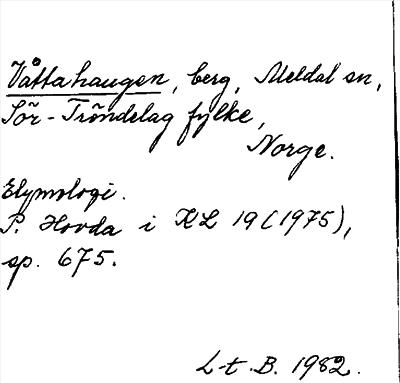 Våttahaugen, berg, Meldal sn,
Sör-Tröndelag fylke,
Norge.
Etymologi.
P. Hovda i KL 19 (1975),
sp. 675.
L-t. B. 1982.